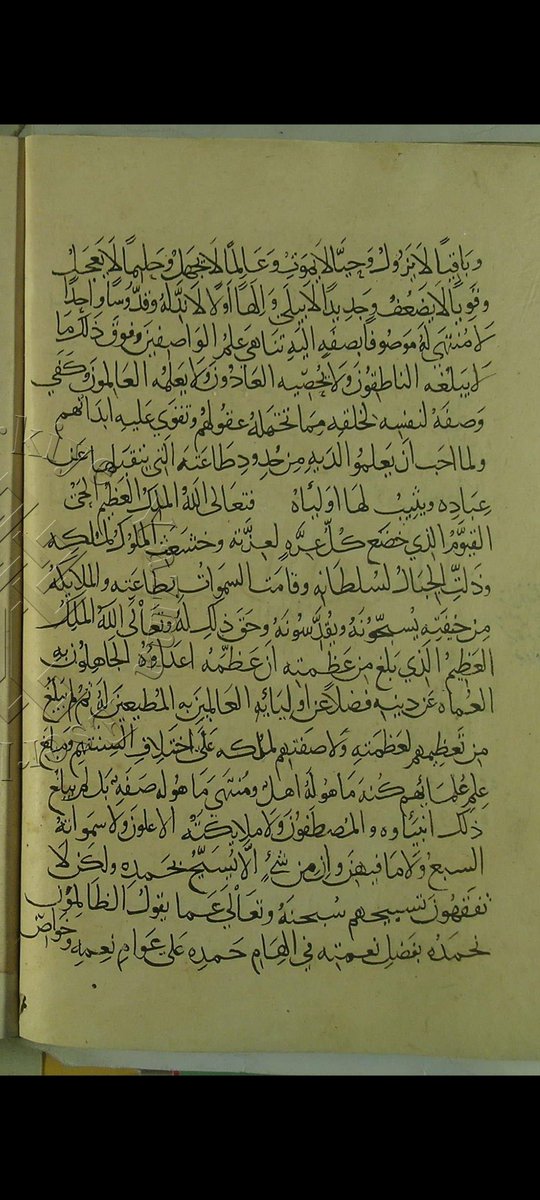 وباقياً لا يزول وحيّاً لا يموت وعالماً لا يجهل وحليماً لا يعجل
وقوياً لا يضعف وجديداً لا يبلى وإلهاً أولا لا ندّ له وقدّوساً واحدا
لا منتهى له موصوفاً بصفه اليه تناهى علم الواصفين وفوق ذلك ما
لا يبلغه الناطقون ولا يحصيه العادّون ولا يعلمه العالمون وكفي
وصفه لنفسه لخلقه مما تحتمله عقولهم وتقوي عليه ابدانهم
ولما احب أن يعلموا لديه من حدود طاعته التي يتقبلها عن
عباده ويثيب لها اولياه فتعالى الله الملك العظيم الحيّ
القيّوم الذي خضع كلّ عزه لعزّته وخشعت الملوك لملكه
وذلّت الجبال لسلطانه وقامت السموات بطاعته والملايكة
من خيفته يسبّحونه ويقدّسونه وحق ذلك له وتعالى الله الملك
العظيم الذي بلغ من عظمته ان عظّمه اعداؤه الجاهلون به
العماه عن دينه فضلا عن اوليائه العالمين به المطيعين له ثم لم يبلغ
من تعظيمهم لعظمته ولا صفتهم لملكه على اختلاف السنتهم ومبلغ
علم علمائهم كنه ما هو له اهل ومنتهى ما هو له صفة بل لم يبلغ
ذلك انبياوه والمصطفون ولا ملايكته الاعلون ولا سمواته
السبع ولا ما فيهن وإن من شئ الّا يسبّح بحمده ولكن لا
تفقهون تسبيحهم سبحنه وتعالى عما يقول الظالمون
نحمده بفضل نعمته في الهام حمده على عوام نعمه وخواص